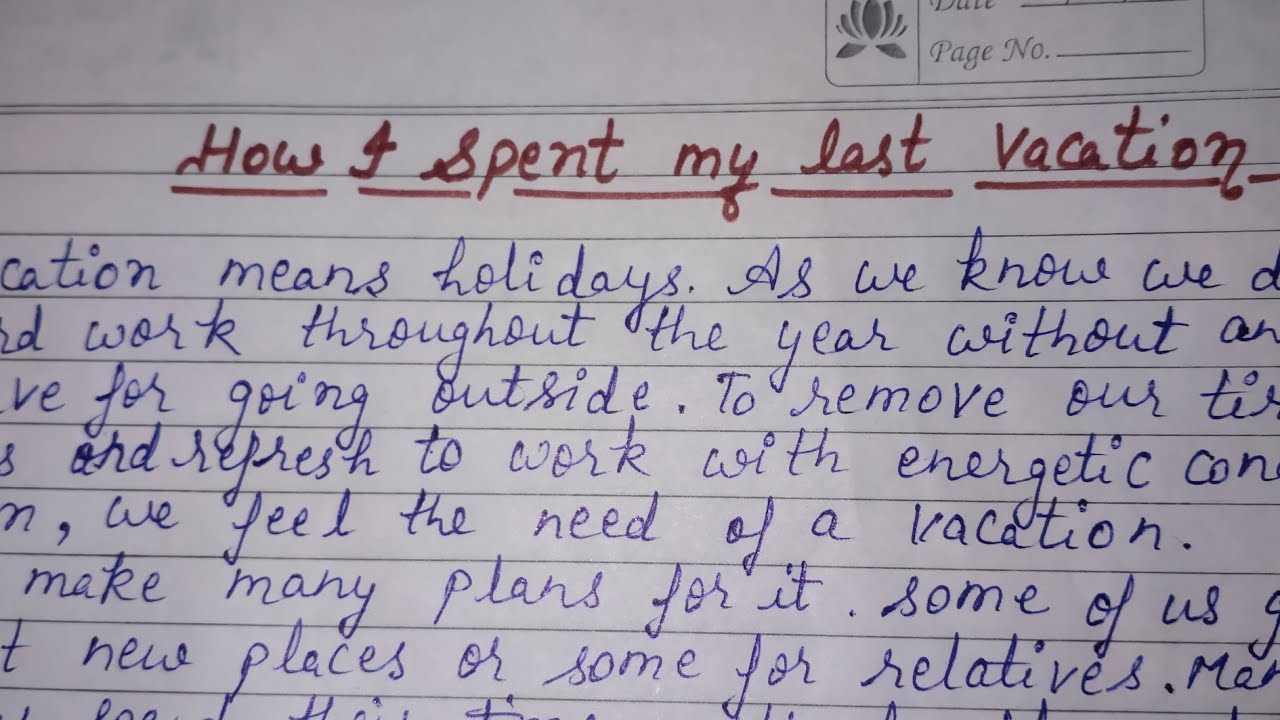 Date
Page No.
How I spent my last vacation
cation means holidays. As we know we d
rd work throughout the year without an
ve for going outside. To remove our tir
s and refresh to work with energetic con
n, we feel the need of a vacation.
make many plans for it. some of us g
t new places or some for relatives. Man
spend their time